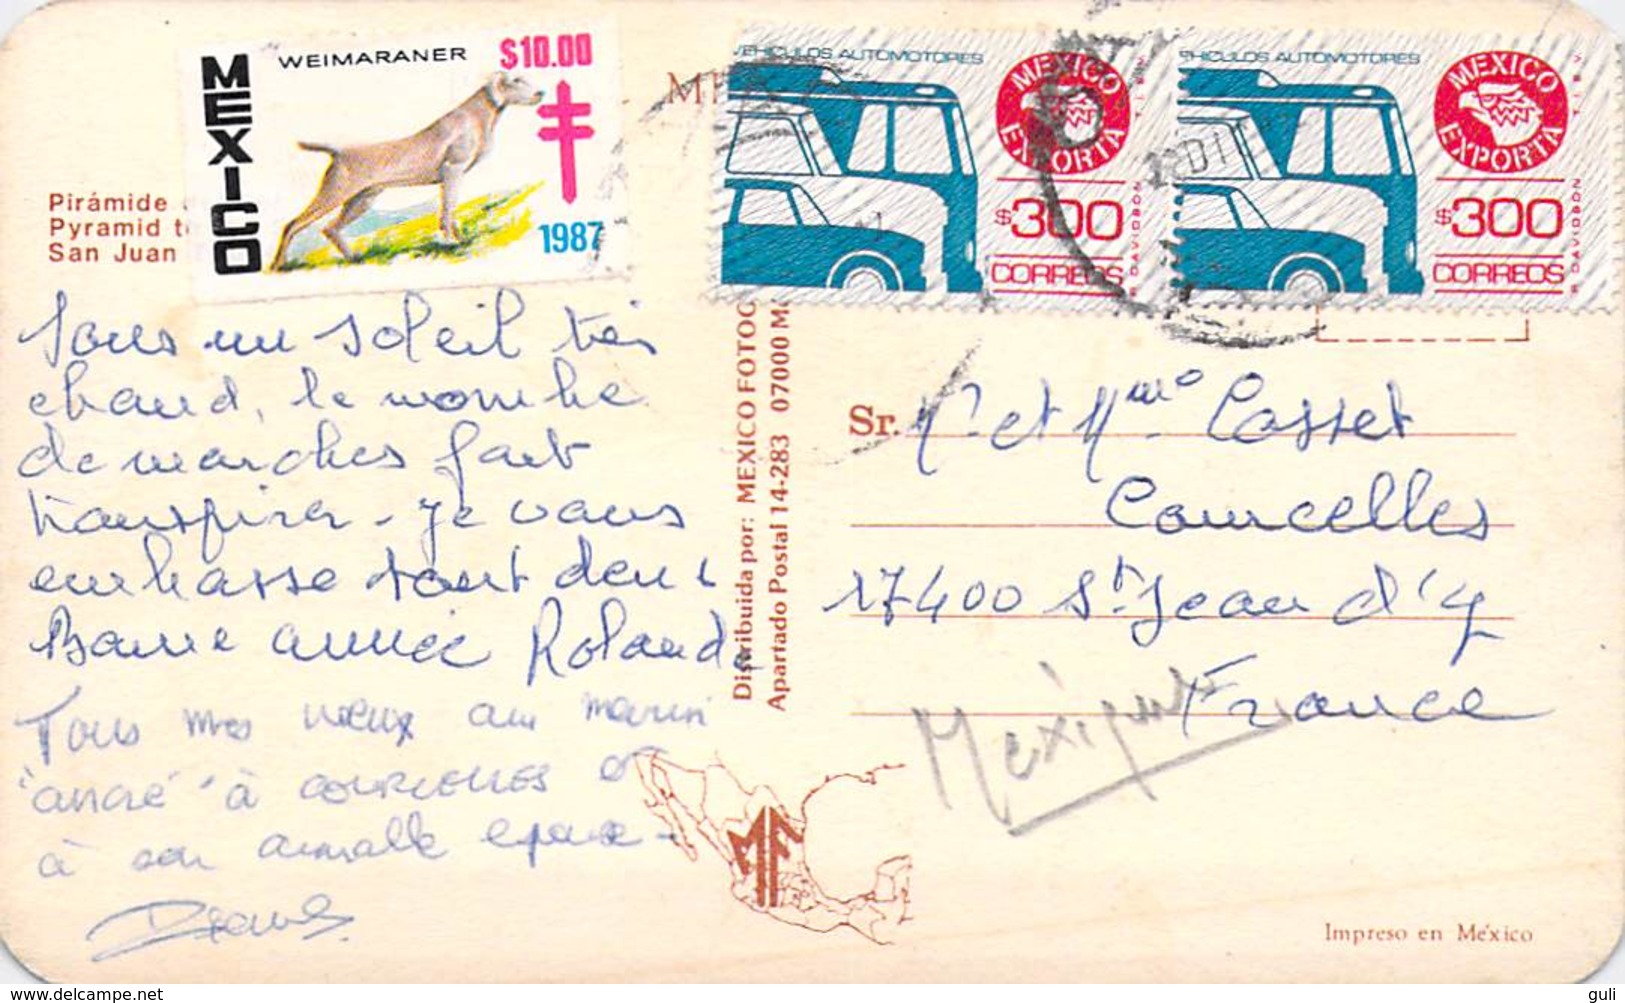 MEXICO
WEIMARANER
$10.00
1987
VEHICULOS AUTOMOTORES
MEXICO
EXPORTA
T.I.E.V.
$300
CORREOS
DAVIDBON
HICULOS AUTOMOTORES
MEXICO
EXPORTA
T.I.E.V.
$300
CORREOS
DAVIDBON
Pirámide
Pyramid t
San Juan
Sous un soleil très
chaud, le nombre
de marches fait
transpirer - Je vous
embrasse tout deux
Bonne année Roland
Tous mes vœux au marin
"André" à COURCELLES et
à son aimable épouse -
Distribuida por: MEXICO FOTOG
Apartado Postal 14-283 07000 M
Sr. Mr et Mme Cosset
Courcelles
17400 St Jean d'Y
France
Mexique
MF
Impreso en México
guli